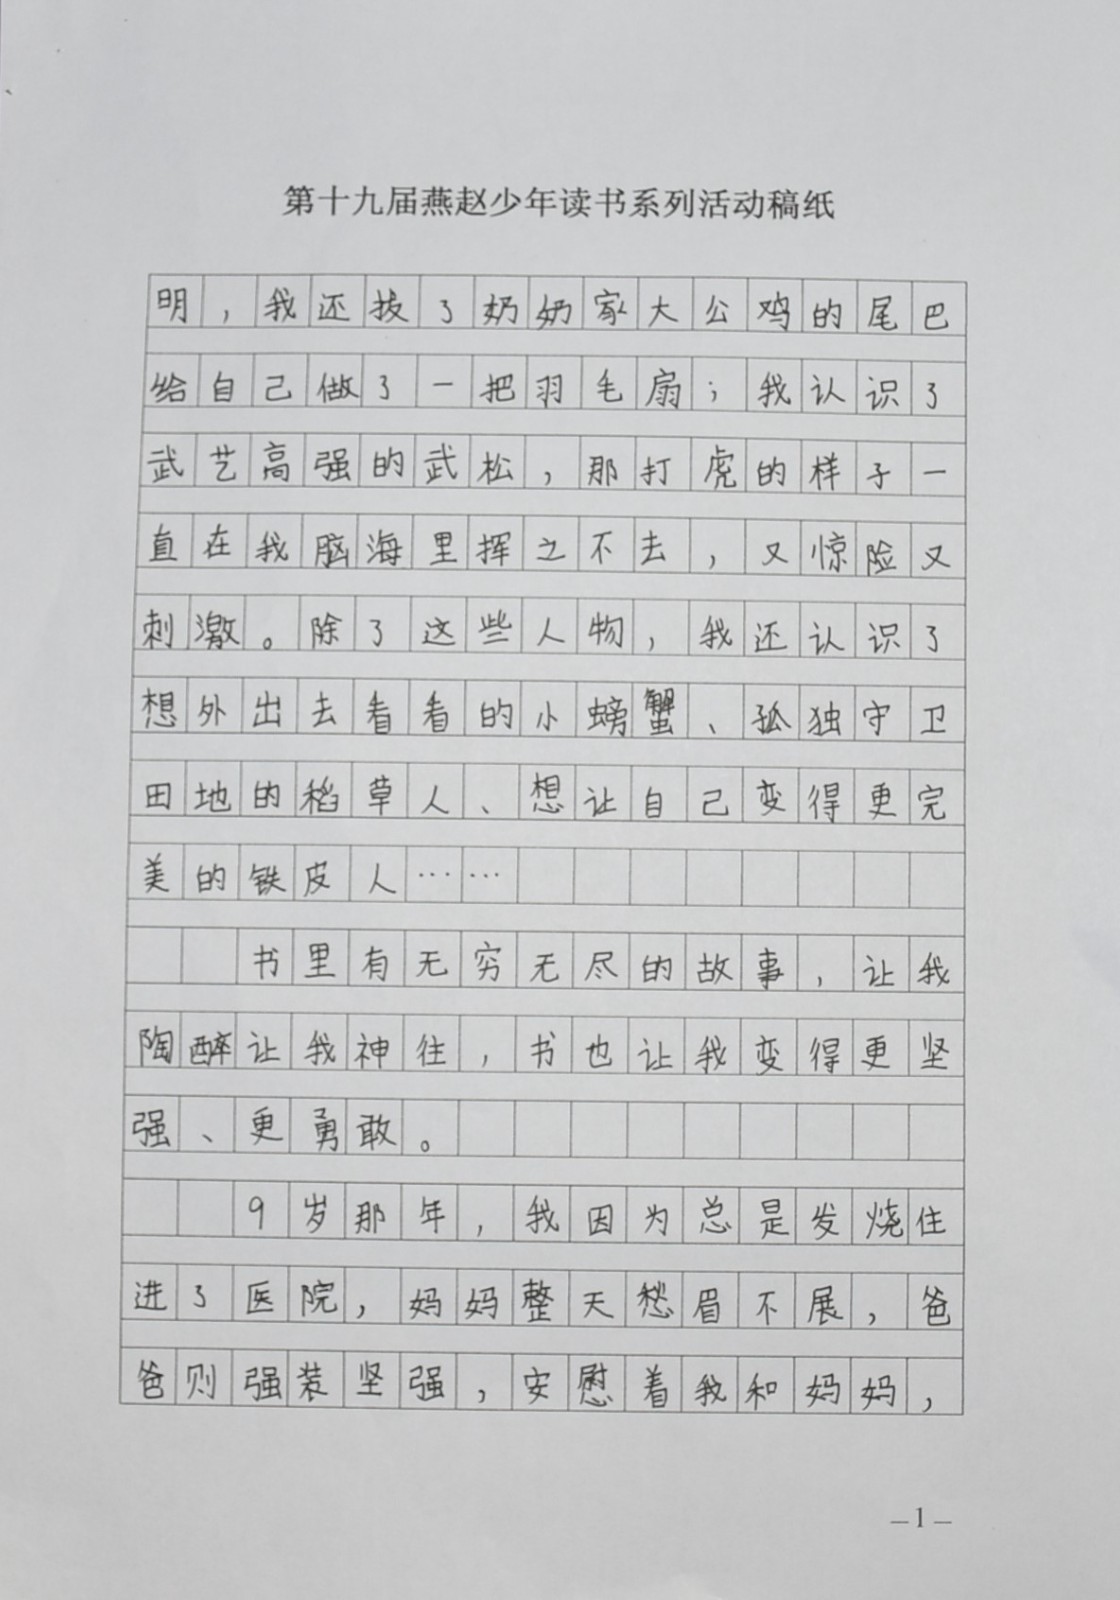 第十九届燕赵少年读书系列活动稿纸
明，我还拔了奶奶家大公鸡的尾巴
给自己做了一把羽毛扇；我认识了
武艺高强的武松，那打虎的样子一
直在我脑海里挥之不去，又惊险又
刺激。除了这些人物，我还认识了
想外出去看看的小螃蟹、孤独守卫
田地的稻草人、想让自己变得更完
美的铁皮人……
书里有无穷无尽的故事，让我
陶醉让我神往，书也让我变得更坚
强、更勇敢。
9岁那年，我因为总是发烧住
进了医院，妈妈整天愁眉不展，爸
爸则强装坚强，安慰着我和妈妈，
—1—